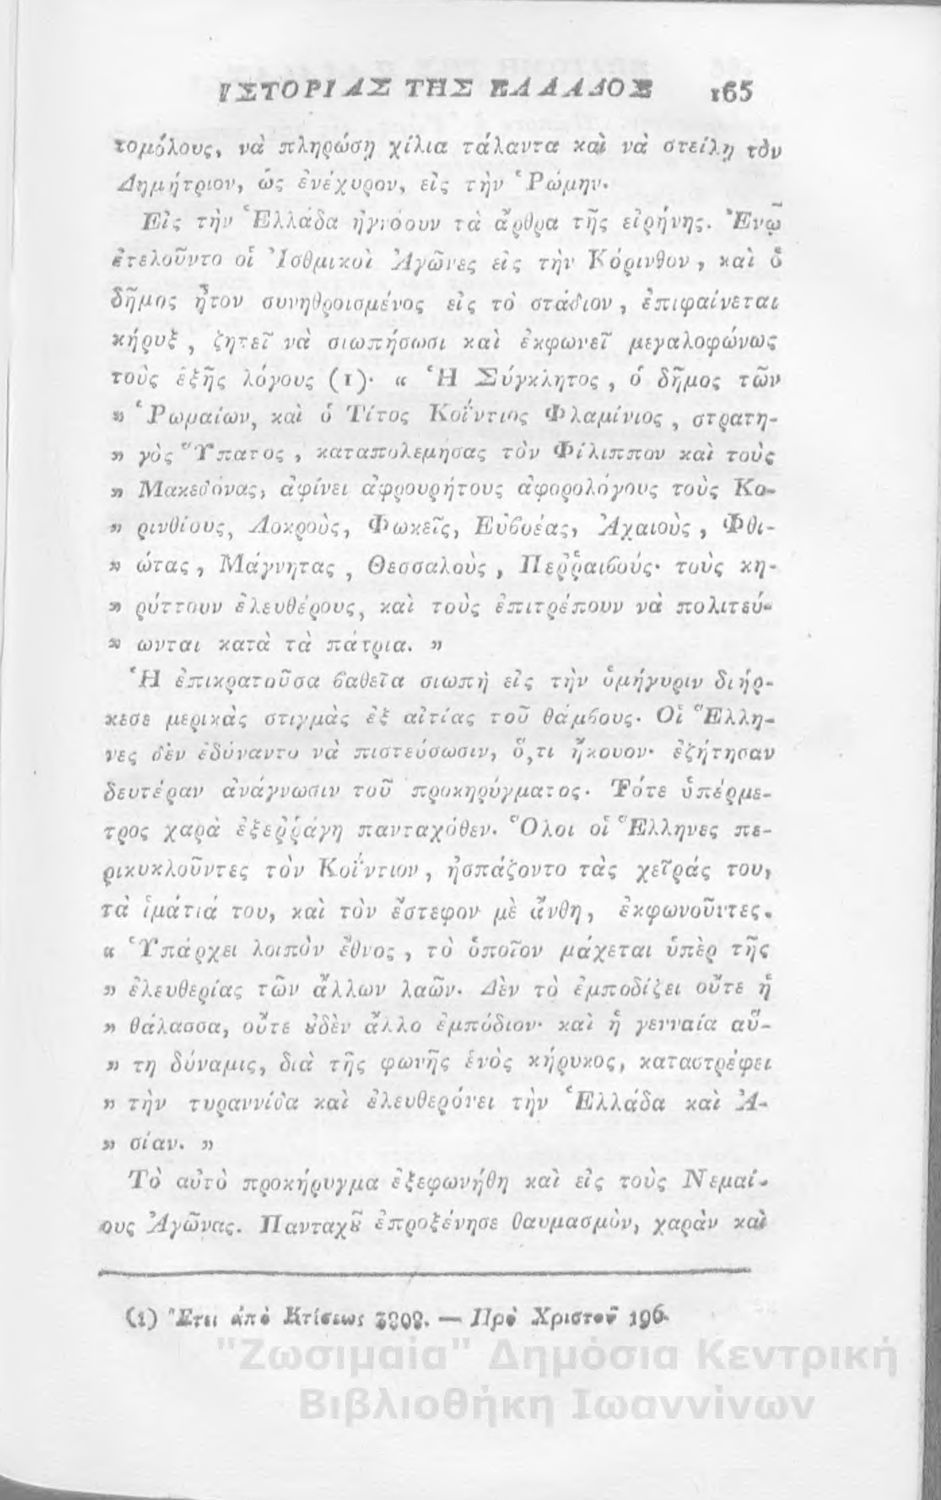 ΙΣΤΟΡΙΑΣ ΤΗΣ ΕΛΛΑΔΟΣ 165
τομόλους, νὰ πληρώσῃ χίλια τάλαντα καὶ νὰ στείλῃ τὸν
Δημήτριον, ὡς ἐνέχυρον, εἰς τὴν Ῥώμην.
Εἰς τὴν Ἑλλάδα ἠγνόουν τὰ ἄρθρα τῆς εἰρήνης. Ἐνῷ
ἐτελοῦντο οἱ Ἰσθμικοὶ Ἀγῶνες εἰς τὴν Κόρινθον, καὶ ὁ
δῆμος ἦτον συνηθροισμένος εἰς τὸ στάδιον, ἐπιφαίνεται
κήρυξ, ζητεῖ νὰ σιωπήσωσι καὶ ἐκφωνεῖ μεγαλοφώνως
τοὺς ἑξῆς λόγους (1)· « Ἡ Σύγκλητος, ὁ δῆμος τῶν
» Ῥωμαίων, καὶ ὁ Τίτος Κοΐντιος Φλαμίνιος, στρατη-
» γὸς Ὕπατος, καταπολεμήσας τὸν Φίλιππον καὶ τοὺς
» Μακεδόνας, ἀφίνει ἀφρουρήτους ἀφορολόγους τοὺς Κο-
» ρινθίους, Λοκροὺς, Φωκεῖς, Εὐϐοέας, Ἀχαιοὺς, Φθι-
» ώτας, Μάγνητας, Θεσσαλοὺς, Περῥαιϐούς· τοὺς κη-
» ρύττουν ἐλευθέρους, καὶ τοὺς ἐπιτρέπουν νὰ πολιτεύ-
» ωνται κατὰ τὰ πάτρια. »
Ἡ ἐπικρατοῦσα βαθεῖα σιωπὴ εἰς τὴν ὁμήγυριν διήρ-
κεσε μερικὰς στιγμὰς ἐξ αἰτίας τοῦ θάμϐους· Οἱ Ἕλλη-
νες δὲν ἐδύναντο νὰ πιστεύσωσιν, ὅ,τι ἤκουον· ἐζήτησαν
δευτέραν ἀνάγνωσιν τοῦ προκηρύγματος· Τότε ὑπέρμε-
τρος χαρὰ ἐξεῤῥάγη πανταχόθεν. Ὅλοι οἱ Ἕλληνες πε-
ρικυκλοῦντες τὸν Κοΐντιον, ἠσπάζοντο τὰς χεῖράς του,
τὰ ἱμάτιά του, καὶ τὸν ἔστεφον μὲ ἄνθη, ἐκφωνοῦντες.
« Ὑπάρχει λοιπὸν ἔθνος, τὸ ὁποῖον μάχεται ὑπὲρ τῆς
» ἐλευθερίας τῶν ἄλλων λαῶν. Δὲν τὸ ἐμποδίζει οὔτε ἡ
» θάλασσα, οὔτε ȣδὲν ἄλλο ἐμπόδιον· καὶ ἡ γενναία αὕ-
» τη δύναμις, διὰ τῆς φωνῆς ἑνὸς κήρυκος, καταστρέφει
» τὴν τυραννίδα καὶ ἐλευθερόνει τὴν Ἑλλάδα καὶ Ἀ-
» σίαν. »
Τὸ αὐτὸ προκήρυγμα ἐξεφωνήθη καὶ εἰς τοὺς Νεμαί-
ους Ἀγῶνας. Πανταχȣ͂ ἐπροξένησε θαυμασμὸν, χαρὰν καὶ
(1) Ἔτει ἀπὸ Κτίσεως 3808. — Πρὸ Χριστοῦ 196.
"Ζωσιμαία" Δημόσια Κεντρική
Βιβλιοθήκη Ιωαννίνων